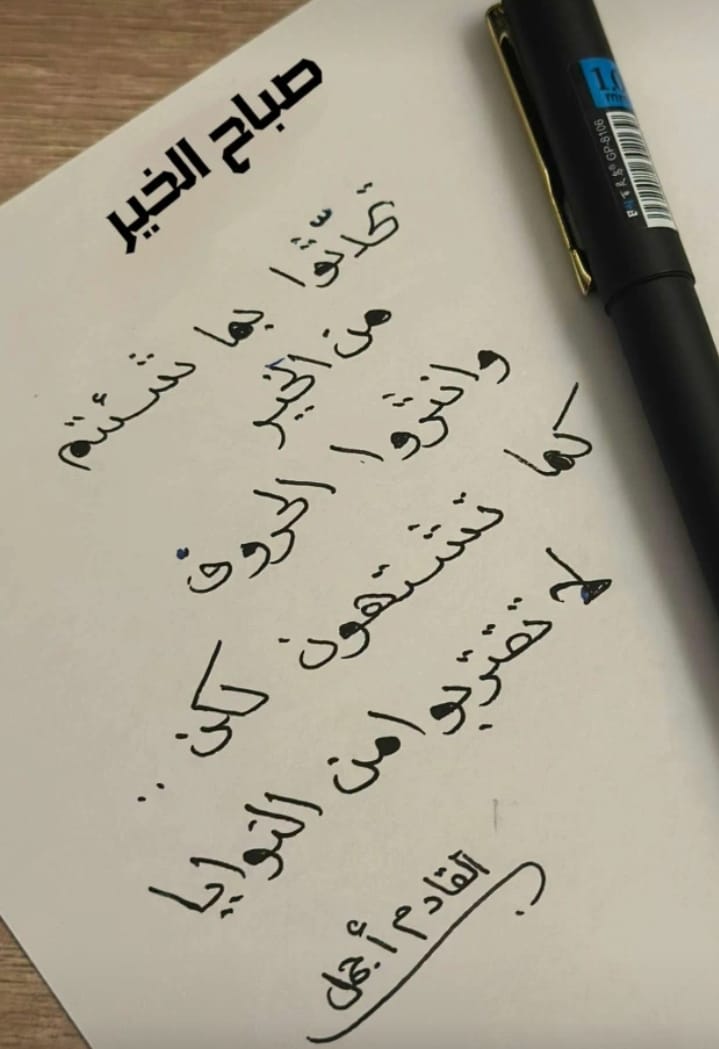 صباح الخير
تحدّثوا بما شئتم
من الخير
وانثروا الحروف
كما تشتهون لكن ..
لا تقتربوا من النوايا
القادم أجمل
1.0
mm
GP-6106